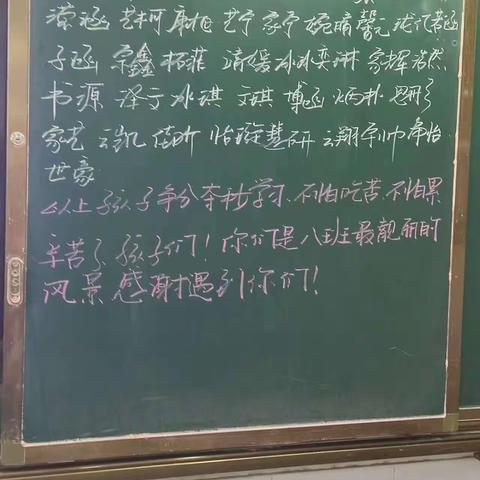 涼涵 艺柯 麻旭 艺宁 家宁 婉晴 馨元 涵
子涵 宗鑫 梓菲 靖媛 冰冰 奕淋 家辉 浩然
书源 泽宇 冰琪 文琪 博函 炳朴 思彤
家艺 云凯 佳昕 怡璇 慧研 云翔 宇帅 净怡
世豪
以上孩子争分夺秒学习、不怕吃苦、不怕累
辛苦了孩子们！你们是八班最靓丽的
风景 感谢遇到你们！